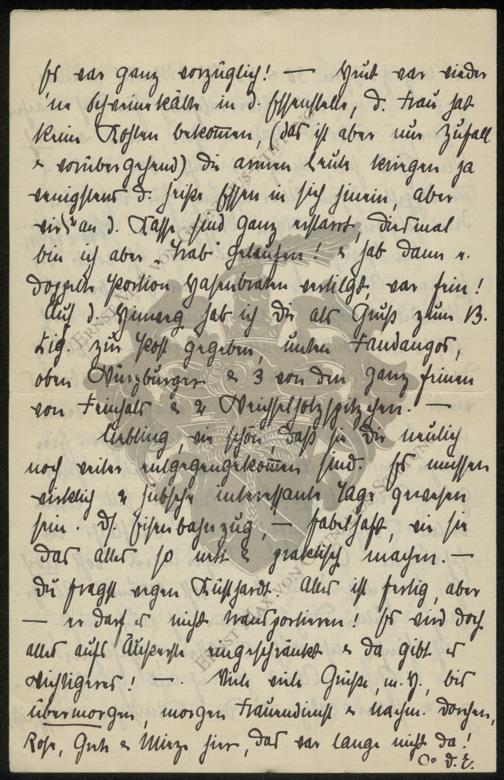 Es war ganz vorzüglich! — Heut war wieder
'ne Schweinekälte in d. Essenstelle, d. Frau hat
keine Kohlen bekom̅en, (das ist aber nur Zufall
& vorübergehend) die armen Leute kriegen ja
wenigstens d. heiße Essen in sich hinein, aber
wir an d. Kasse sind ganz erstarrt, diesmal
bin ich aber "Trab" gelaufen! & hab dann e.
doppelte Portion Hasenbraten vertilgt, war fein!
Auf d. Heimweg hab ich Dir als Gruß zum 13.
Zig. zur Post gegeben, unten Fandangos,
oben Würzburger & 3 von den ganz feinen
von Feinhals & 2 Weichselholzspitzchen. —
Liebling, wie schön, daß sie Dir neulich
noch weiter entgegengekom̅en sind. Es müssen
wirklich & hübsche interessante Tage gewesen
sein. D. Eisenbahnzug, — fabelhaft, wie sie
das alles so nett & praktisch machen. —
Du fragst wegen Kusthardt. Alles ist fertig, aber
— er darf es nicht transportieren! Es wird doch
alles aufs Äußerste eingeschränkt & da gibt es
Wichtigeres! — . Viele viele Grüße, m. H., bis
übermorgen, morgen Frauendienst & nachm. Dorchen,
Rose, Grete & Mieze hier, das war lange nicht da!
D. E.
ERNST MAX VON